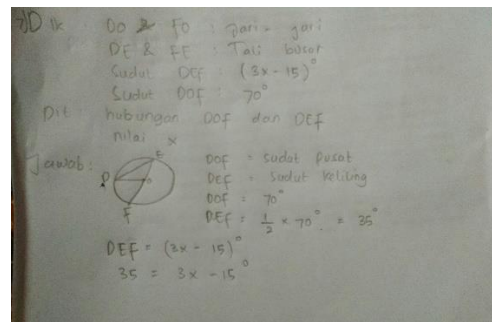 7) Dik : DO & FO : Jari - jari
DE & FE : Tali busur
Sudut DEF : (3x - 15)°
Sudut DOF : 70°
Dit : hubungan DOF dan DEF
nilai x
Jawab :
E
D
O
F
DOF = Sudut pusat
DEF = Sudut keliling
DOF = 70°
DEF = 1/2 x 70° = 35°
DEF = (3x - 15)°
35 = 3x - 15°